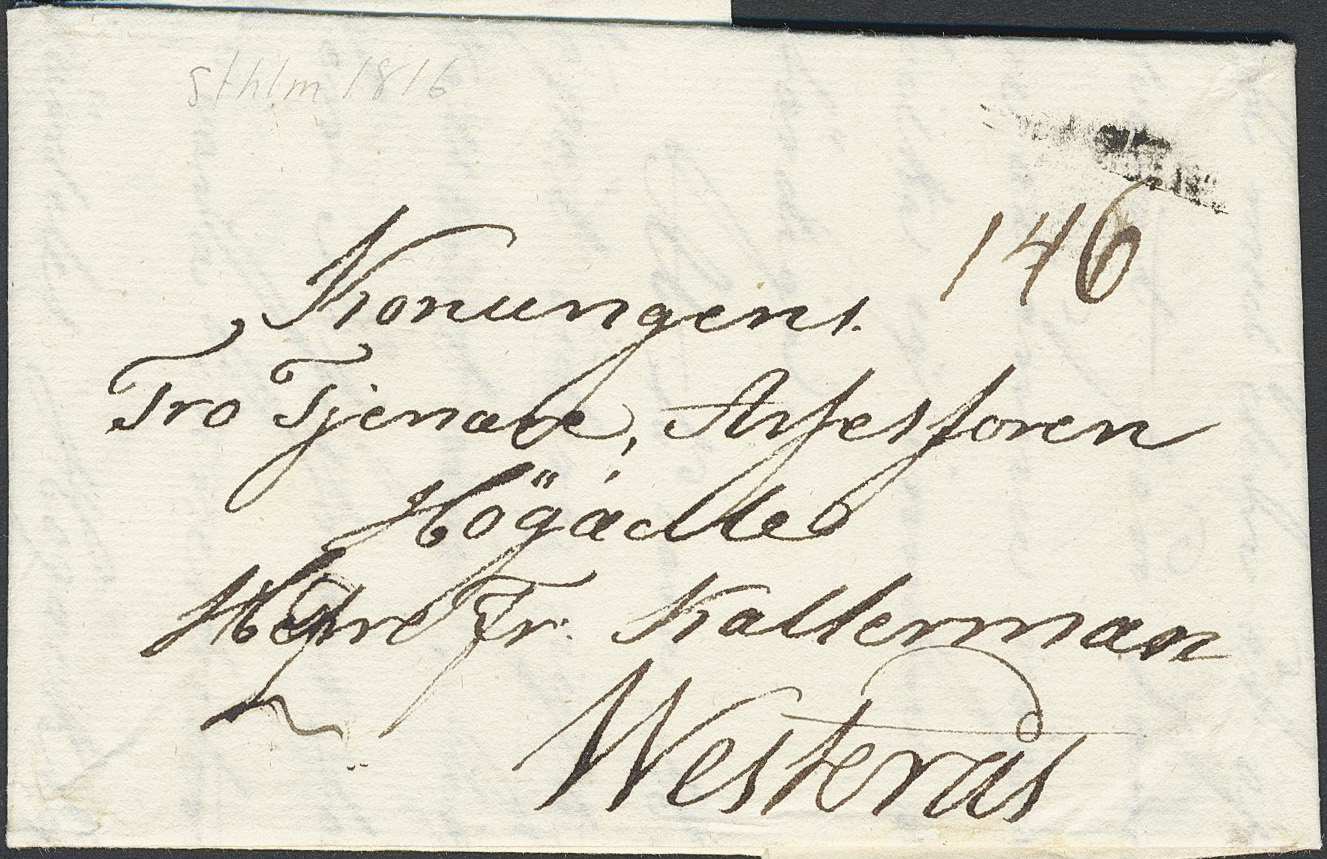 sthlm 1816
146
Konungens.
Tro Tjenare, Assessoren
Högädle
Herre Fr. Kallerman
Westerås